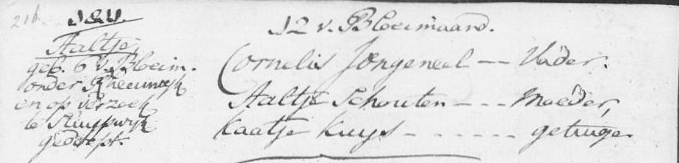 1811.
Aaltje,
geb. 6 v. Bloeim.
onder Rheeuwyk
en op verzoek
te Sluypwyk
gedoept.
12 v. Bloeimaand.
Cornelis Jongeneel -- Vader.
Aaltje Schouten --- Moeder,
Kaatje Kuys - - - - - - - getuige.